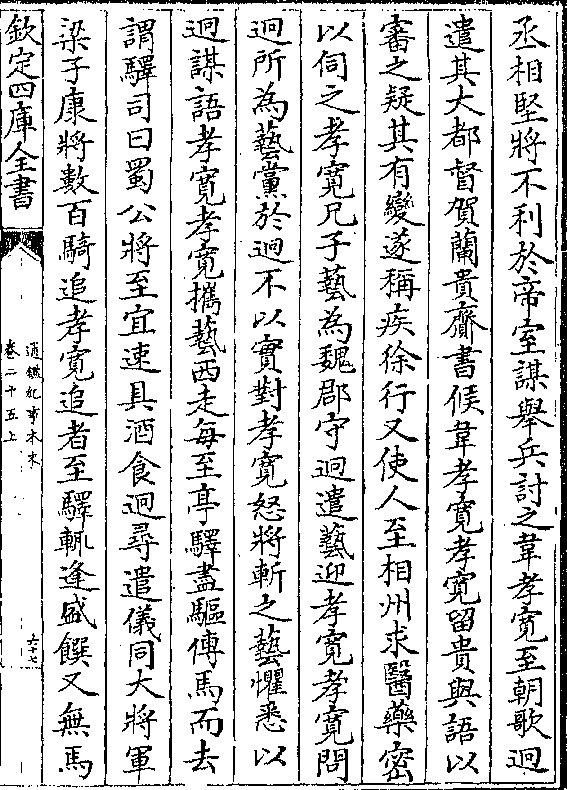 丞相堅將不利於帝室謀舉兵討之韋孝寛至朝歌迥
遣其大都督賀蘭貴齎書候韋孝寛孝寛留貴與語以
審之疑其有變遂稱疾徐行又使人至相州求醫藥密
以伺之孝寛兄子藝為魏郡守迥遣藝迎孝寛孝寛問
迥所為藝黨於迥不以實對孝寛怒將斬之藝懼悉以
迥謀語孝寛孝寛攜藝西走每至亭驛盡驅傳馬而去
謂驛司曰蜀公將至宜速具酒食迥尋遣儀同大將軍
梁子康將數百騎追孝寛追者至驛輒逢盛饌又無馬
欽定四庫全書
通鑑紀事本末
卷二十五上
六十七